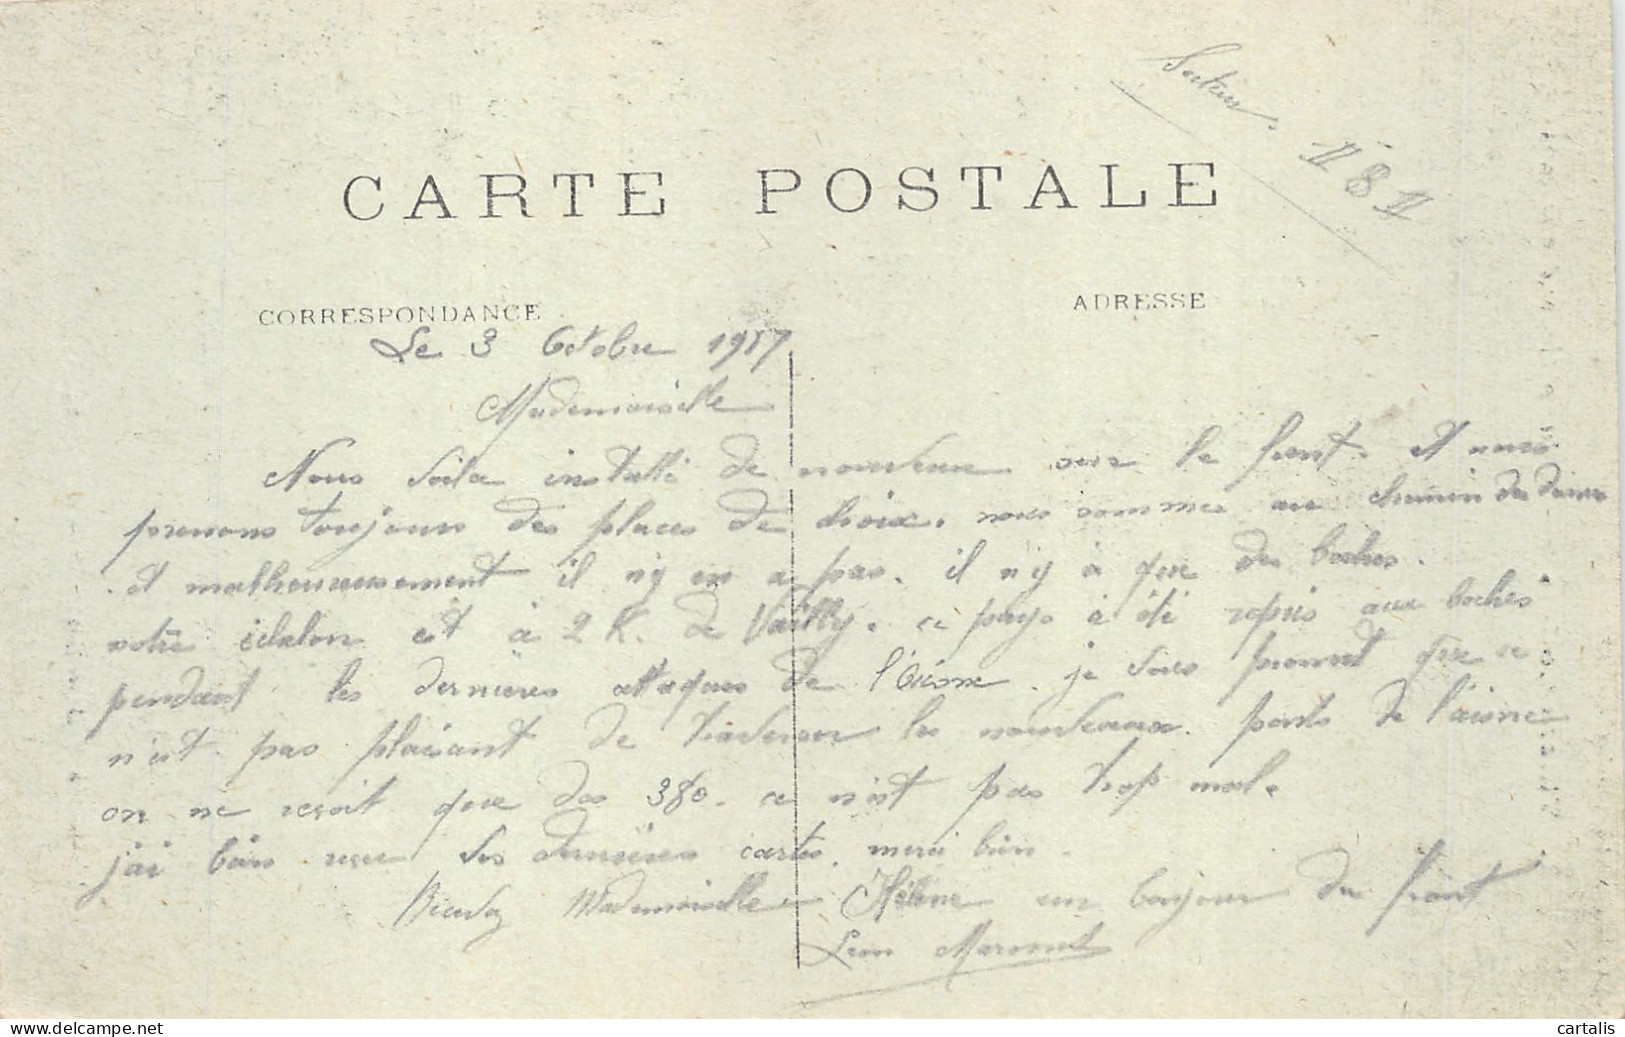 Secteur
181
CARTE POSTALE
CORRESPONDANCE
ADRESSE
Le 3 Octobre 1917
Mademoiselle
Nous voila installé de nouveau sur le front. et nous
prenons toujours des places de choix. nous sommes au chemin des dames
et malheureusement il n'y en a pas. il n'y à que des boches.
notre échelon est à 2 K. de Vailly. ce pays à été repris aux boches
pendant les dernières attaques de l'Aisne. je vous promet que ce
n'est pas plaisant de traverser les nouveaux ponts de l'aisne
on ne reçoit que des 380. ce n'est pas trop mal.
j'ai bien reçu vos dernières cartes. merci bien.
Mademoiselle Hélène un bonjour du front
Léon
www.delcampe.net
cartalis